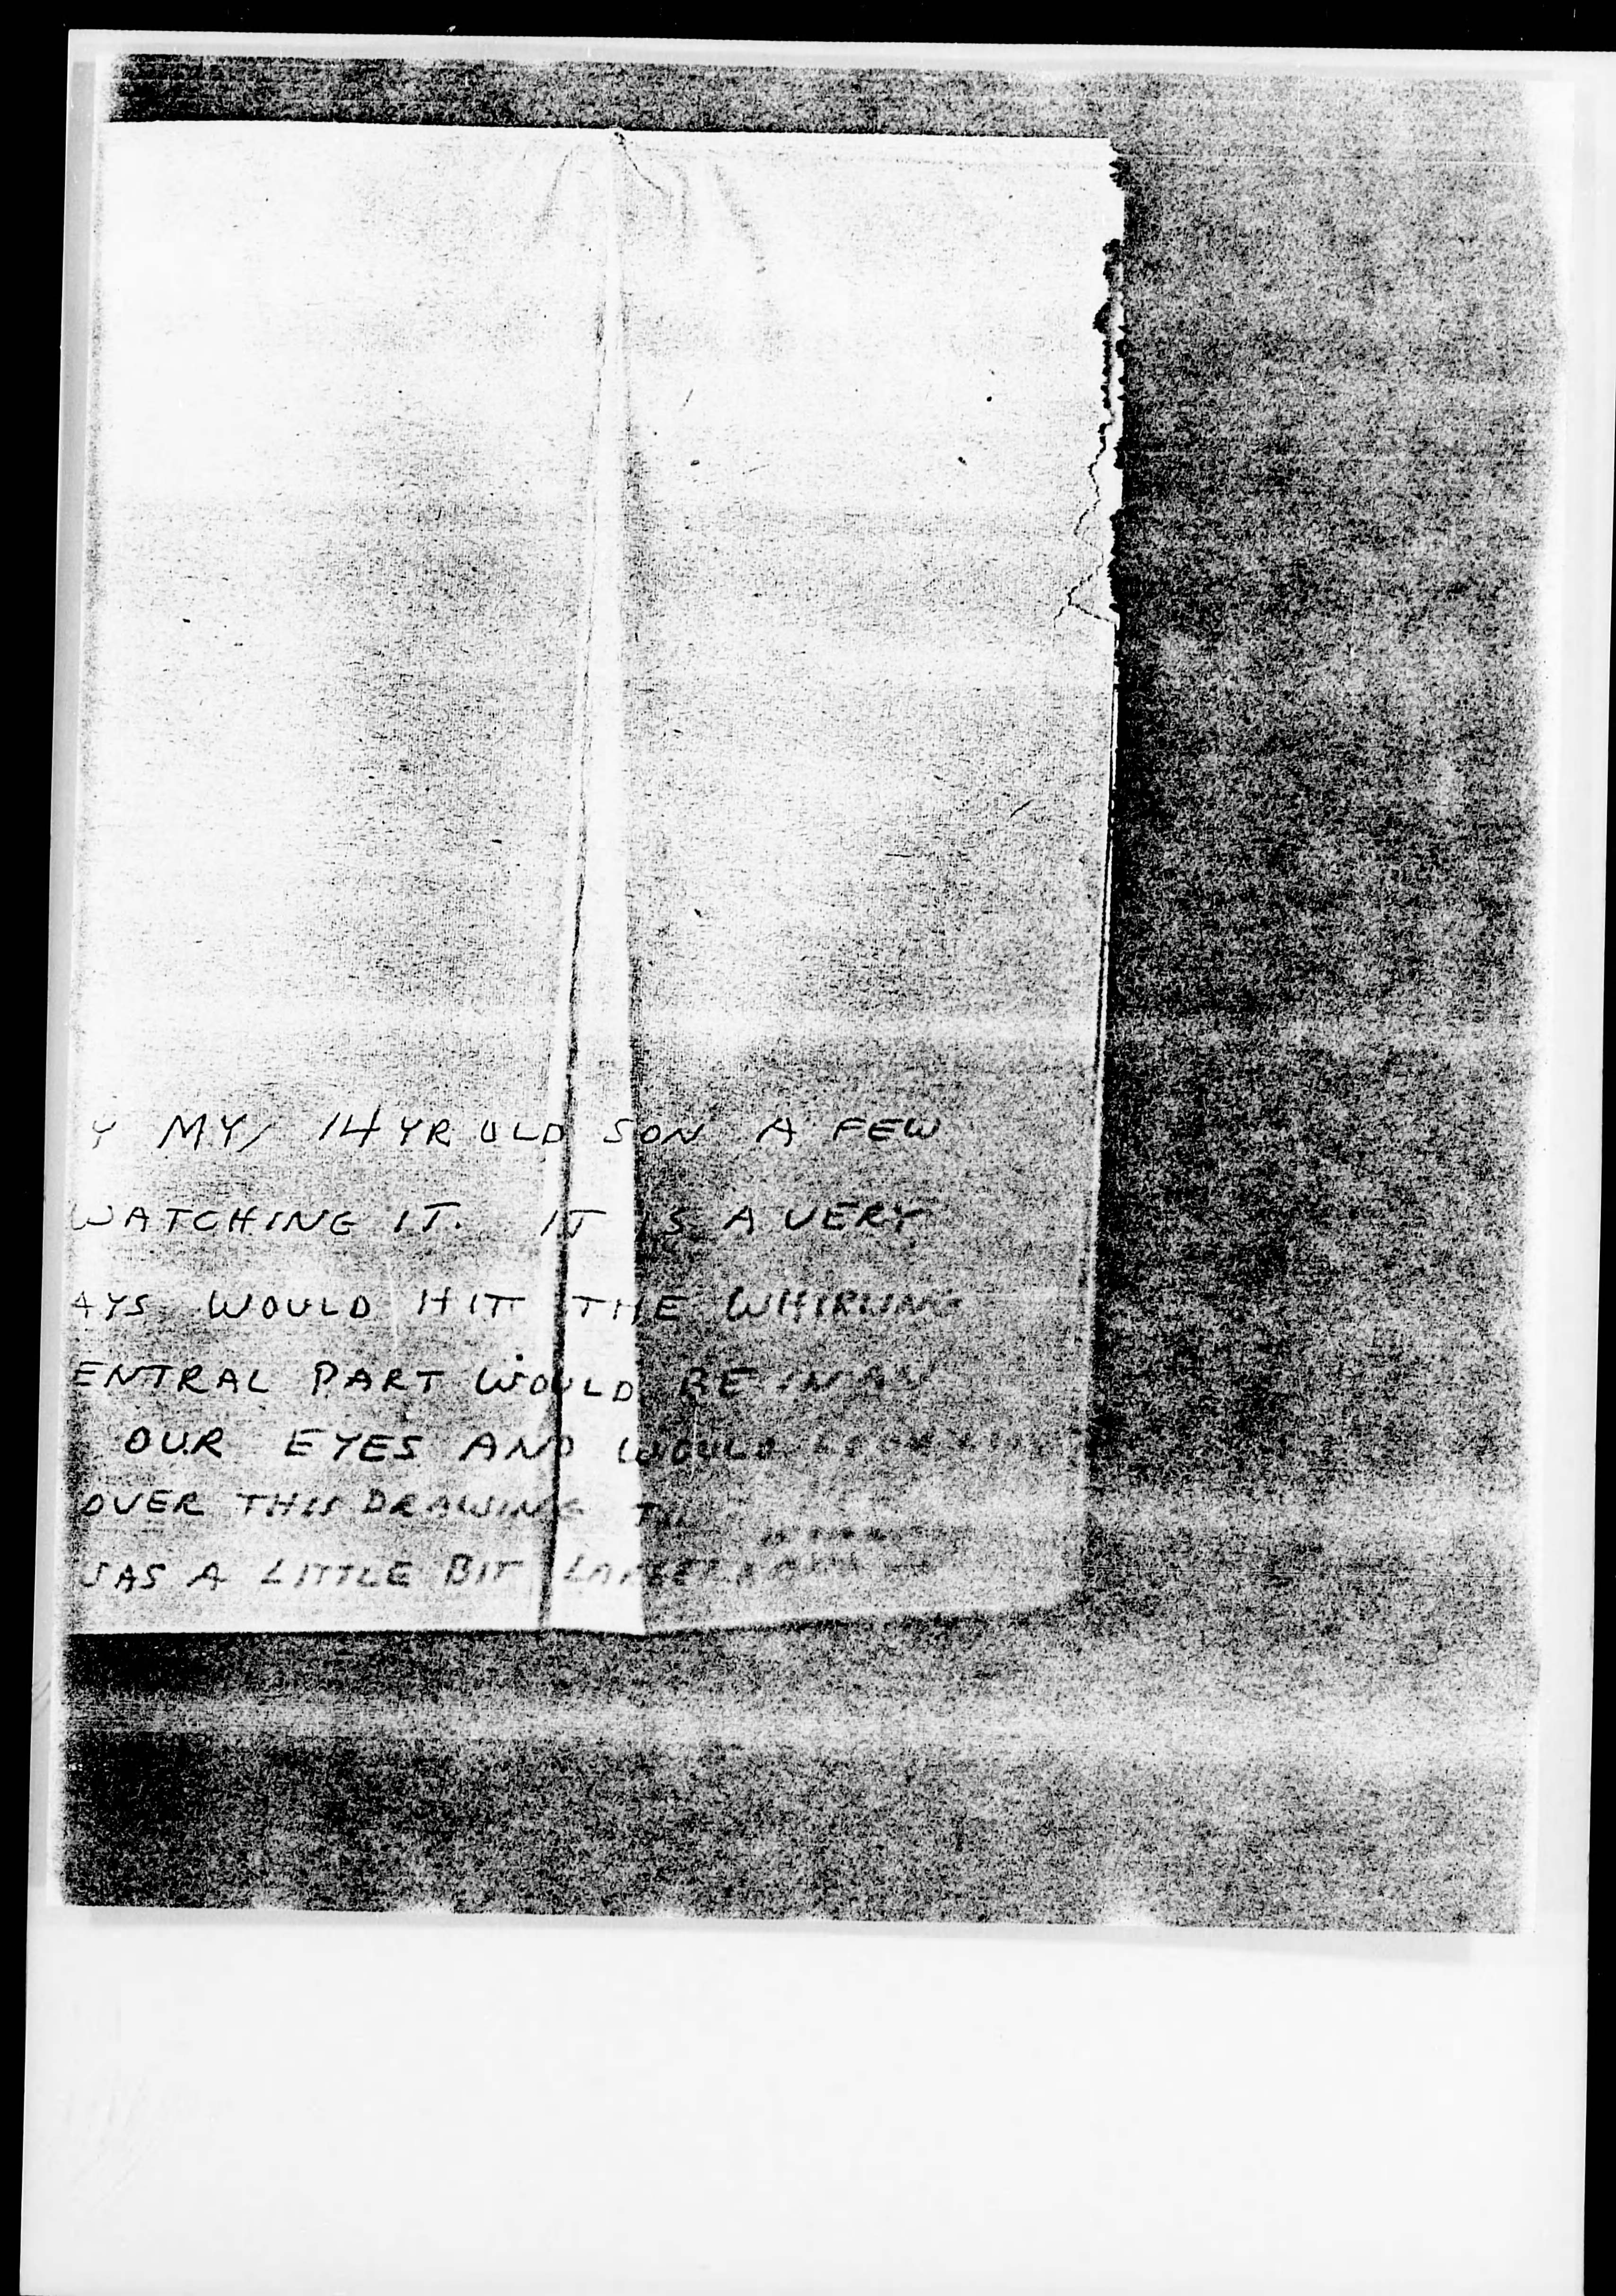 Y MY 14 YR OLD SON A FEW
WATCHING IT. IT IS A VERY
AYS WOULD HIT THE WHIRLING
ENTRAL PART WOULD BE IN AN
OUR EYES AND WOULD
OVER THIS DRAWING
WAS A LITTLE BIT LARGER